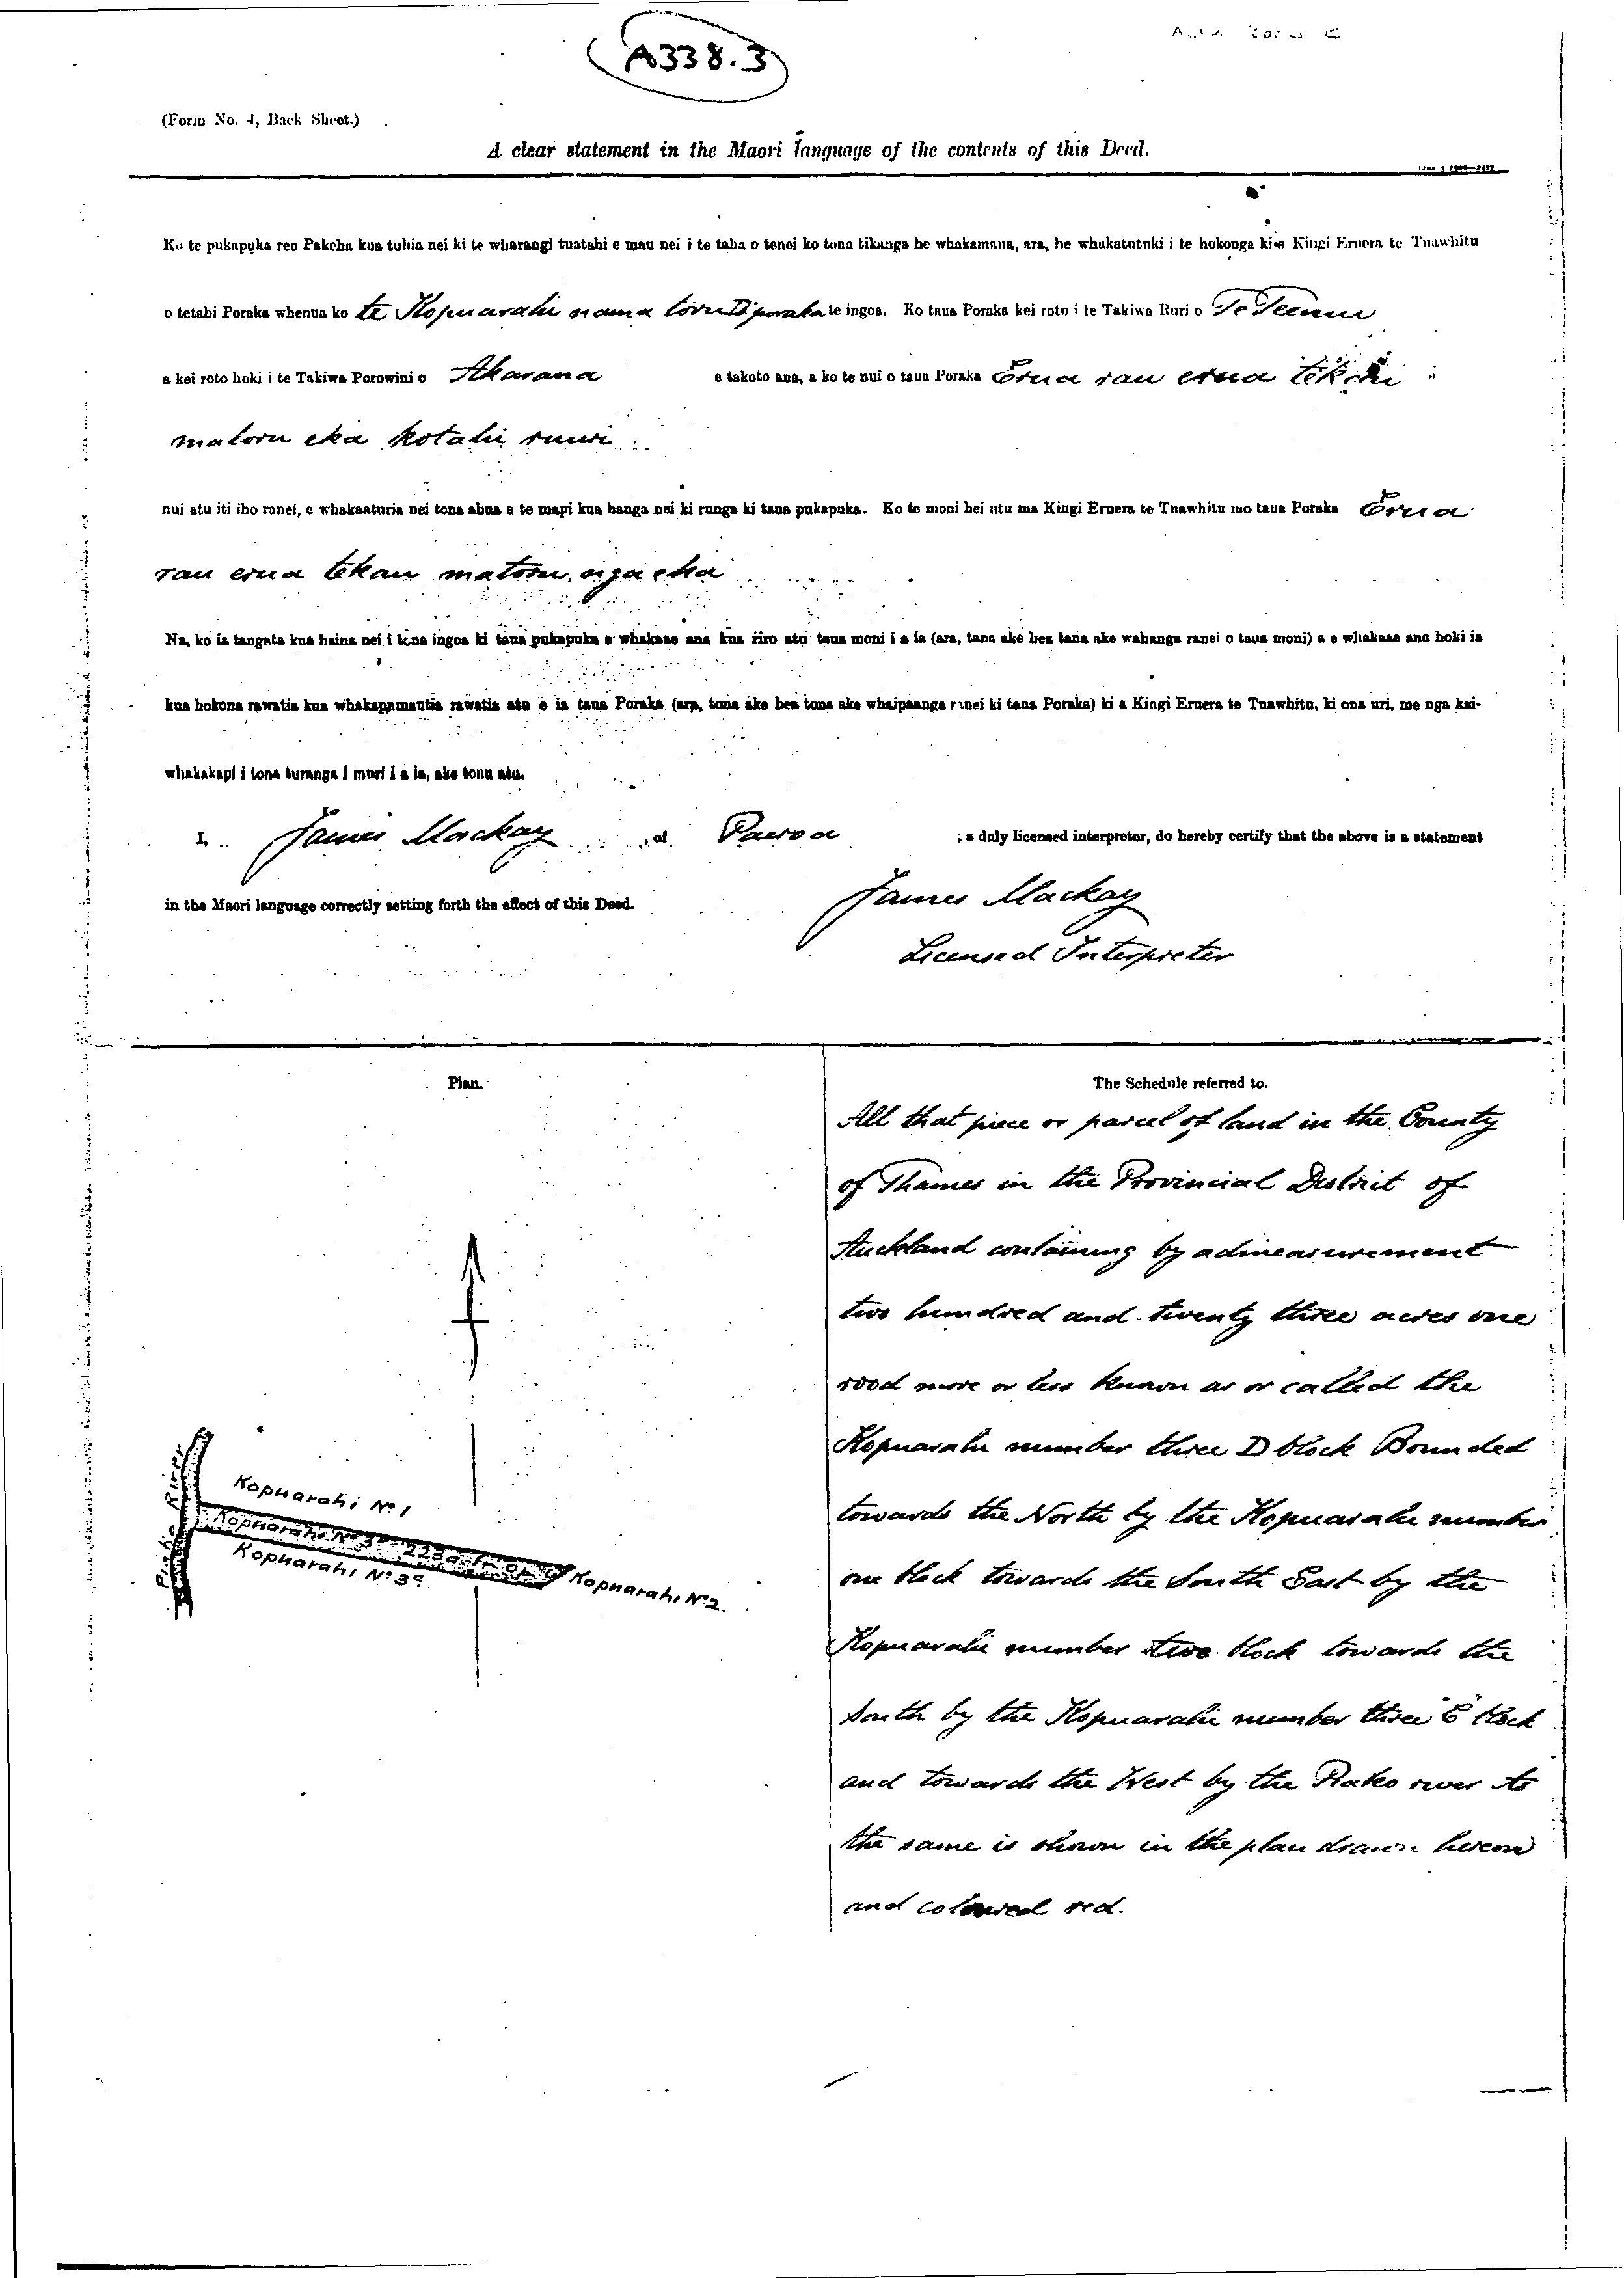 A338.3
(Form No. 4, Back Sheet.)
A clear statement in the Maori language of the contents of this Deed.
Ko te pukapuka reo Pakeha kua tuhia nei ki te wharangi tuatahi e mau nei i te taha o tenei ko tona tikanga he whakamana, ara, he whakatutuki i te hokonga kia Kingi Eruera te Tuawhitu
o tetahi Poraka whenua ko te Kopuarahi nama toru D poraka te ingoa. Ko taua Poraka kei roto i te Takiwa Ruri o Te Teemu
a kei roto hoki i te Takiwa Porowini o Akarana e takoto ana, a ko te nui o taua Poraka Erua rau erua tekau
matoru eka kotahi ruuri
nui atu iti iho ranei, e whakaaturia nei tona ahua e te mapi kua hanga nei ki runga ki taua pukapuka. Ko te moni hei utu ma Kingi Eruera te Tuawhitu mo taua Poraka Erua
rau erua tekau matoru nga eka
Na, ko ia tangata kua haina nei i tona ingoa ki taua pukapuka e whakaae ana kua riro atu taua moni i a ia (ara, tana ake hea tana ake wahanga ranei o taua moni) a e whakaae ana hoki ia
kua hokona rawatia kua whakapumautia rawatia atu e ia taua Poraka (ara, tona ake hea tona ake whaipaanga ranei ki taua Poraka) ki a Kingi Eruera te Tuawhitu, ki ona uri, me nga kai-
whakakapi i tona turanga i muri i a ia, ake tonu atu.
I, James Mackay of Paeroa ; a duly licensed interpreter, do hereby certify that the above is a statement
in the Maori language correctly setting forth the effect of this Deed.
James Mackay
Licensed Interpreter
Plan.
The Schedule referred to.
All that piece or parcel of land in the County
of Thames in the Provincial District of
Auckland containing by admeasurement
two hundred and twenty three acres one
rood more or less known as or called the
Kopuarahi number three D block Bounded
towards the North by the Kopuarahi number
one block towards the South East by the
Kopuarahi number two block towards the
South by the Kopuarahi number three "C" block
and towards the West by the Piako river As
the same is shown in the plan drawn hereon
and coloured red.
Piako River
Kopuarahi No 1
Kopuarahi No 3D 223a 1r 0p
Kopuarahi No 3C
Kopuarahi No 2.